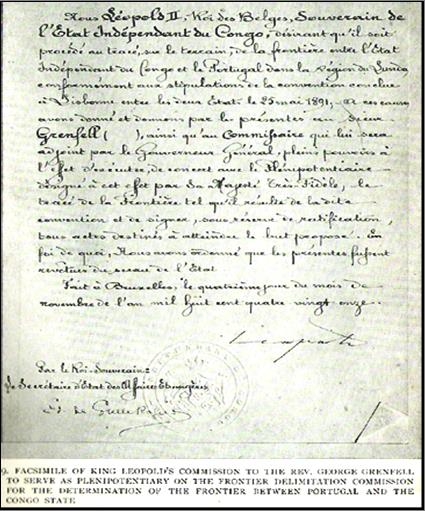 Nous Léopold II, Roi des Belges, Souverain de
l'Etat Indépendant du Congo, désirant qu'il soit
procédé au tracé, sur le terrain, de la frontière entre l'Etat
Indépendant du Congo et le Portugal dans la région du Lunda
conformément aux stipulations de la convention conclue
à Lisbonne entre les deux Etats le 25 mai 1891,
avons donné et donnons par les présentes au Sieur
Grenfell ( ), ainsi qu'au Commissaire qui lui sera
adjoint par le Gouverneur Général, pleins pouvoirs à
l'effet d'exécuter, de concert avec le Plénipotentiaire
désigné à cet effet par Sa Majesté Très Fidèle, le
tracé de la Frontière tel qu'il résulte de la dite
convention et de signer, sous réserve de ratification,
tous actes destinés à atteindre le but proposé. En
foi de quoi, Nous avons ordonné que les présentes fussent
revêtues du sceau de l'Etat
Fait à Bruxelles, le quatrième jour du mois de
novembre de l'an mil huit cent quatre vingt onze.
Léopold
Par le Roi-Souverain:
Le Secrétaire d'Etat des Affaires Etrangères
Ed. de
9. FACSIMILE OF KING LEOPOLD'S COMMISSION TO THE REV. GEORGE GRENFELL
TO SERVE AS PLENIPOTENTIARY ON THE FRONTIER DELIMITATION COMMISSION
FOR THE DETERMINATION OF THE FRONTIER BETWEEN PORTUGAL AND THE
CONGO STATE